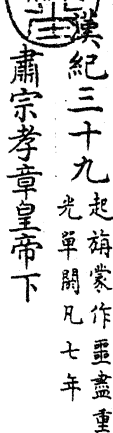 漢紀三十九
起旃蒙作噩盡重
光單閼凡七年
肅宗孝章皇帝下